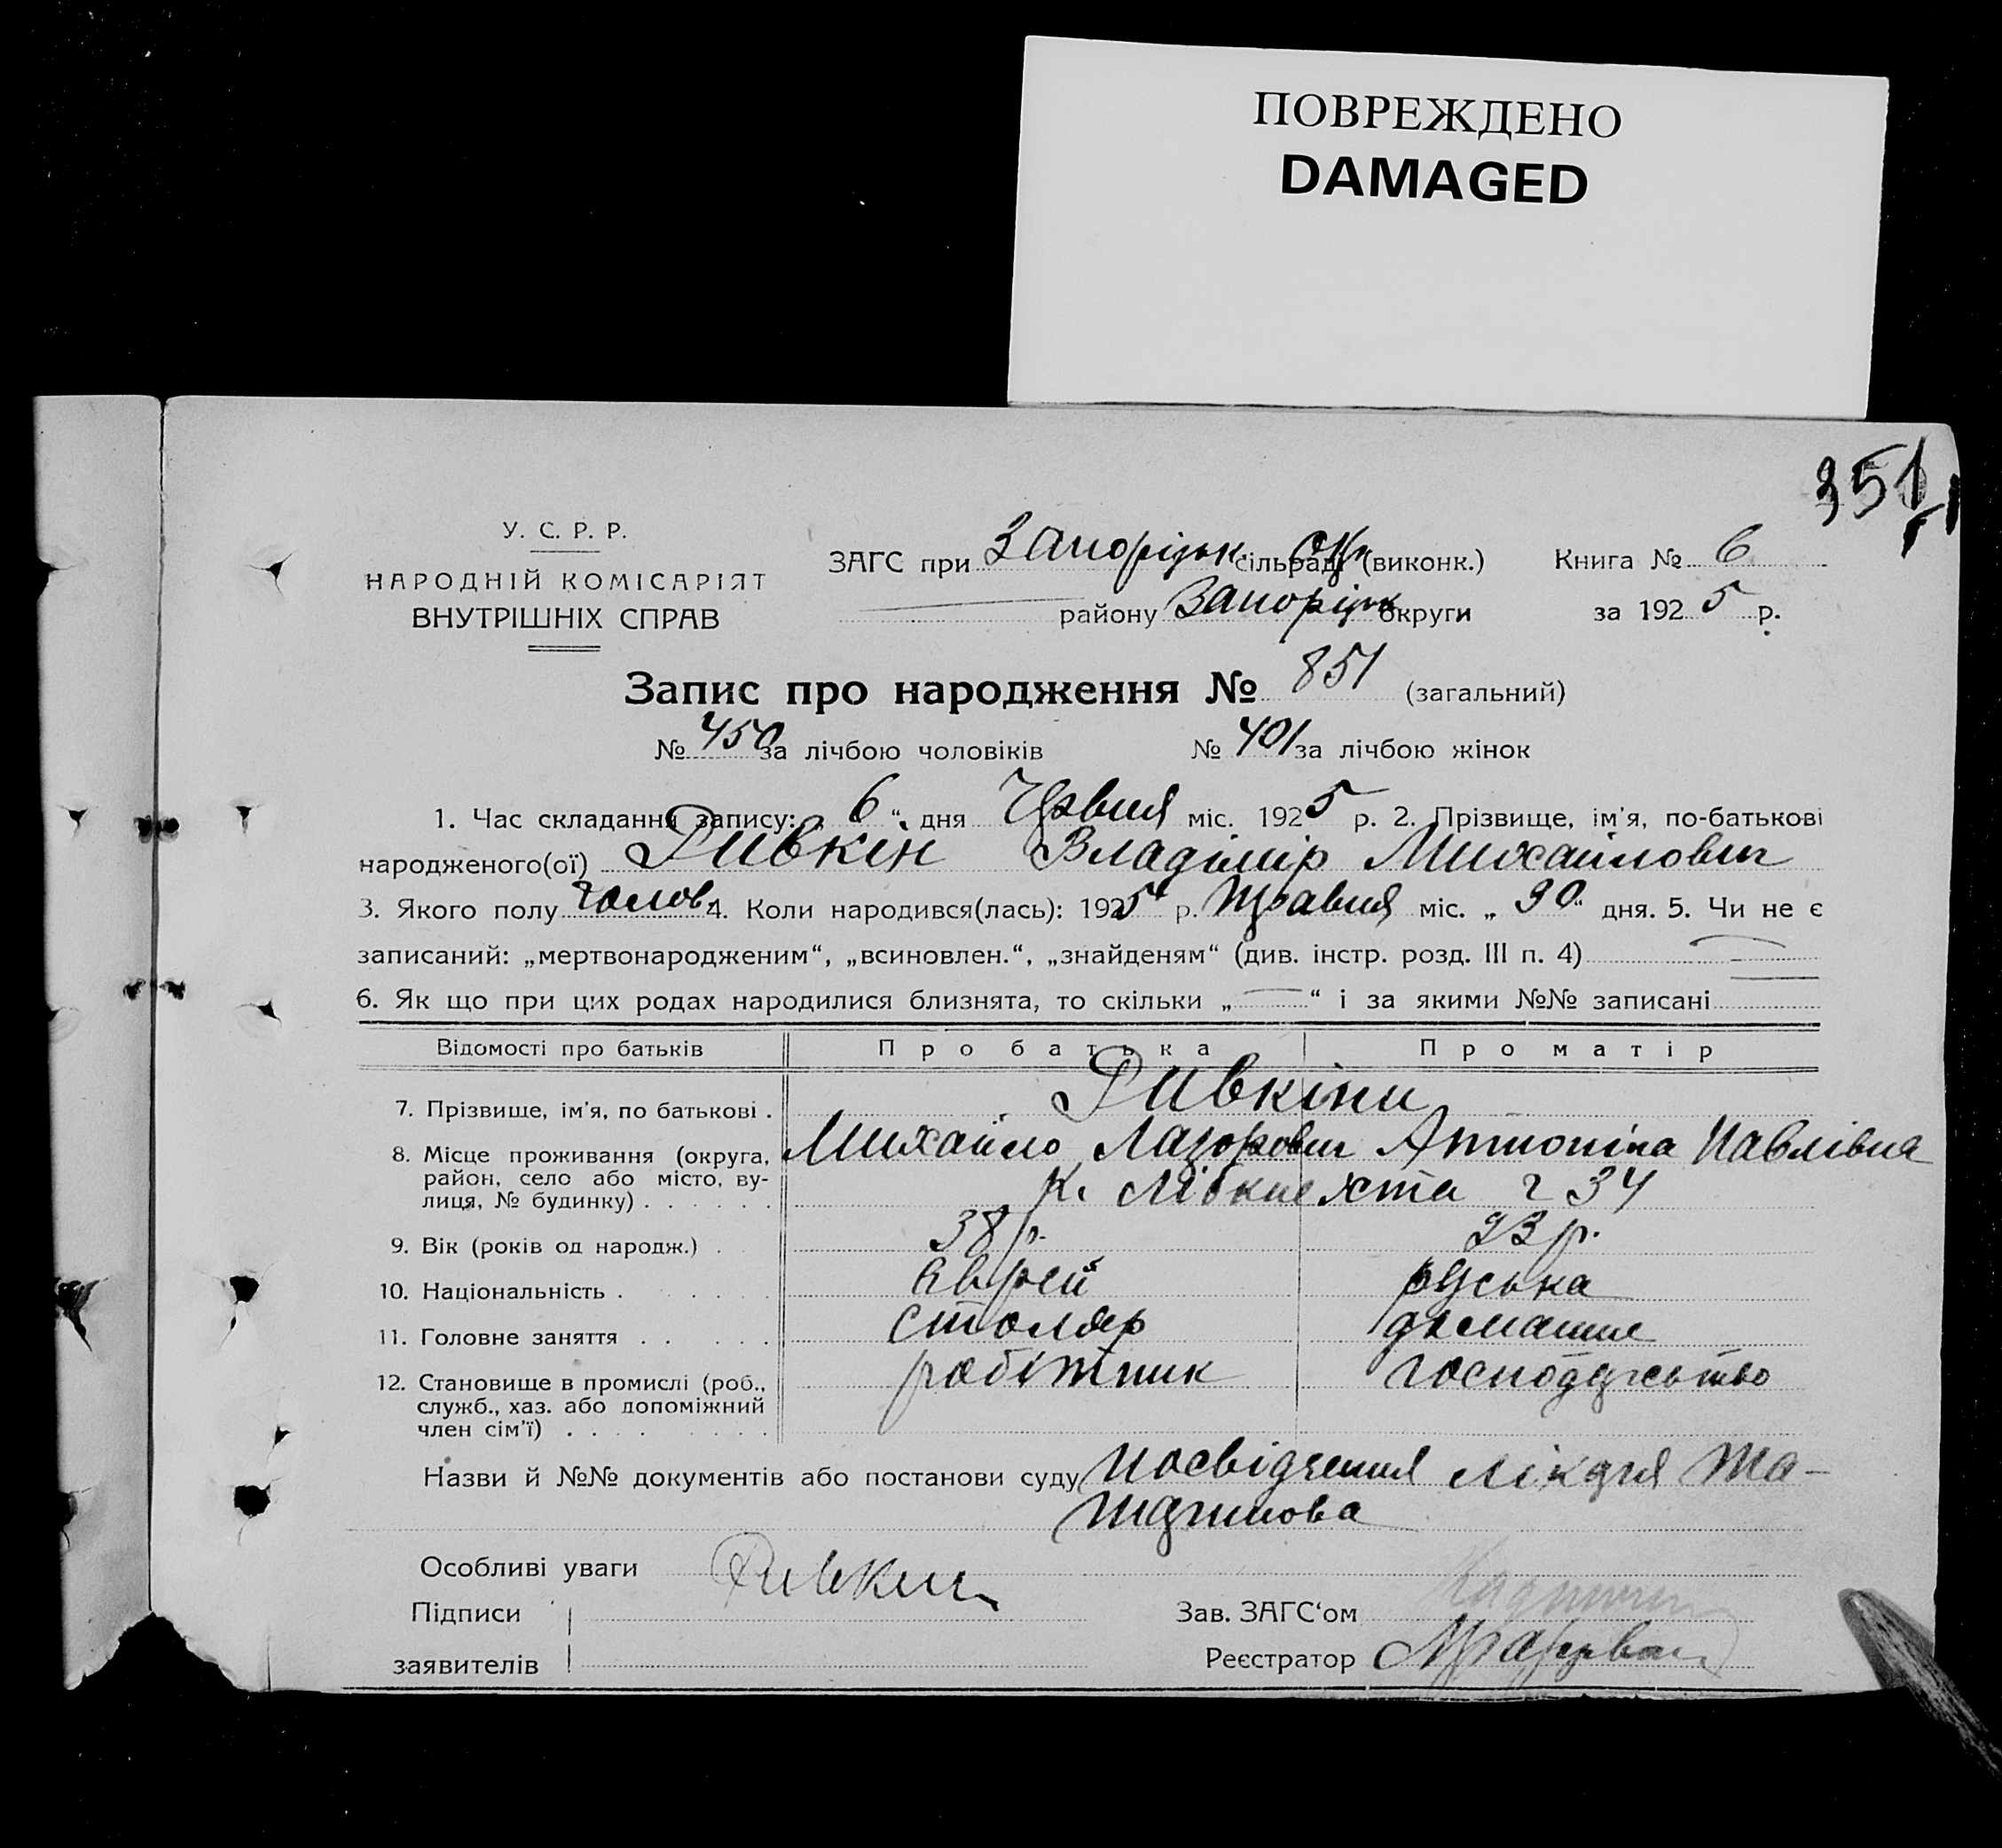 ПОВРЕЖДЕНО
DAMAGED
351
У. С. Р. Р.
НАРОДНІЙ КОМІСАРІЯТ
ВНУТРІШНІХ СПРАВ
ЗАГС при Запорізьк. сільраді (виконк.) Окр
Книга № 6
району Запорізьк округи
за 1925 р.
Запис про народження № 851 (загальний)
№ 450 за лічбою чоловіків № 401 за лічбою жінок
1. Час складання запису: „ 6 “ дня Червня міс. 1925 р. 2. Прізвище, ім'я, по-батькові
народженого(ої) Ривкін Владімір Михайлович
3. Якого полу чолов. 4. Коли народився(лась): 1925 р. Травня міс. „ 30 “ дня. 5. Чи не є
записаний: „мертвонародженим“, „всиновлен.“, „знайденям“ (див. інстр. розд. III п. 4)
6. Як що при цих родах народилися близнята, то скільки „ — “ і за якими №№ записані
Відомості про батьків Про батька Про матір
7. Прізвище, ім'я, по батькові . Ривкіни
Михайло Лазорович Антоніна Павлівна
8. Місце проживання (округа,
район, село або місто, ву-
лиця, № будинку) . . . . . . К. Лібкнехта 34
9. Вік (років од народж.) . 38 р. 23 р.
10. Національність . Єврей руська
11. Головне заняття . . столяр домашнє
12. Становище в промислі (роб.,
служб., хаз. або допоміжний
член сім'ї) . . . . робітник господарство
Назви й №№ документів або постанови суду посвідчення лікаря
Особливі уваги
Ривкин
Підписи
заявителів
Зав. ЗАГС‘ом
Реєстратор